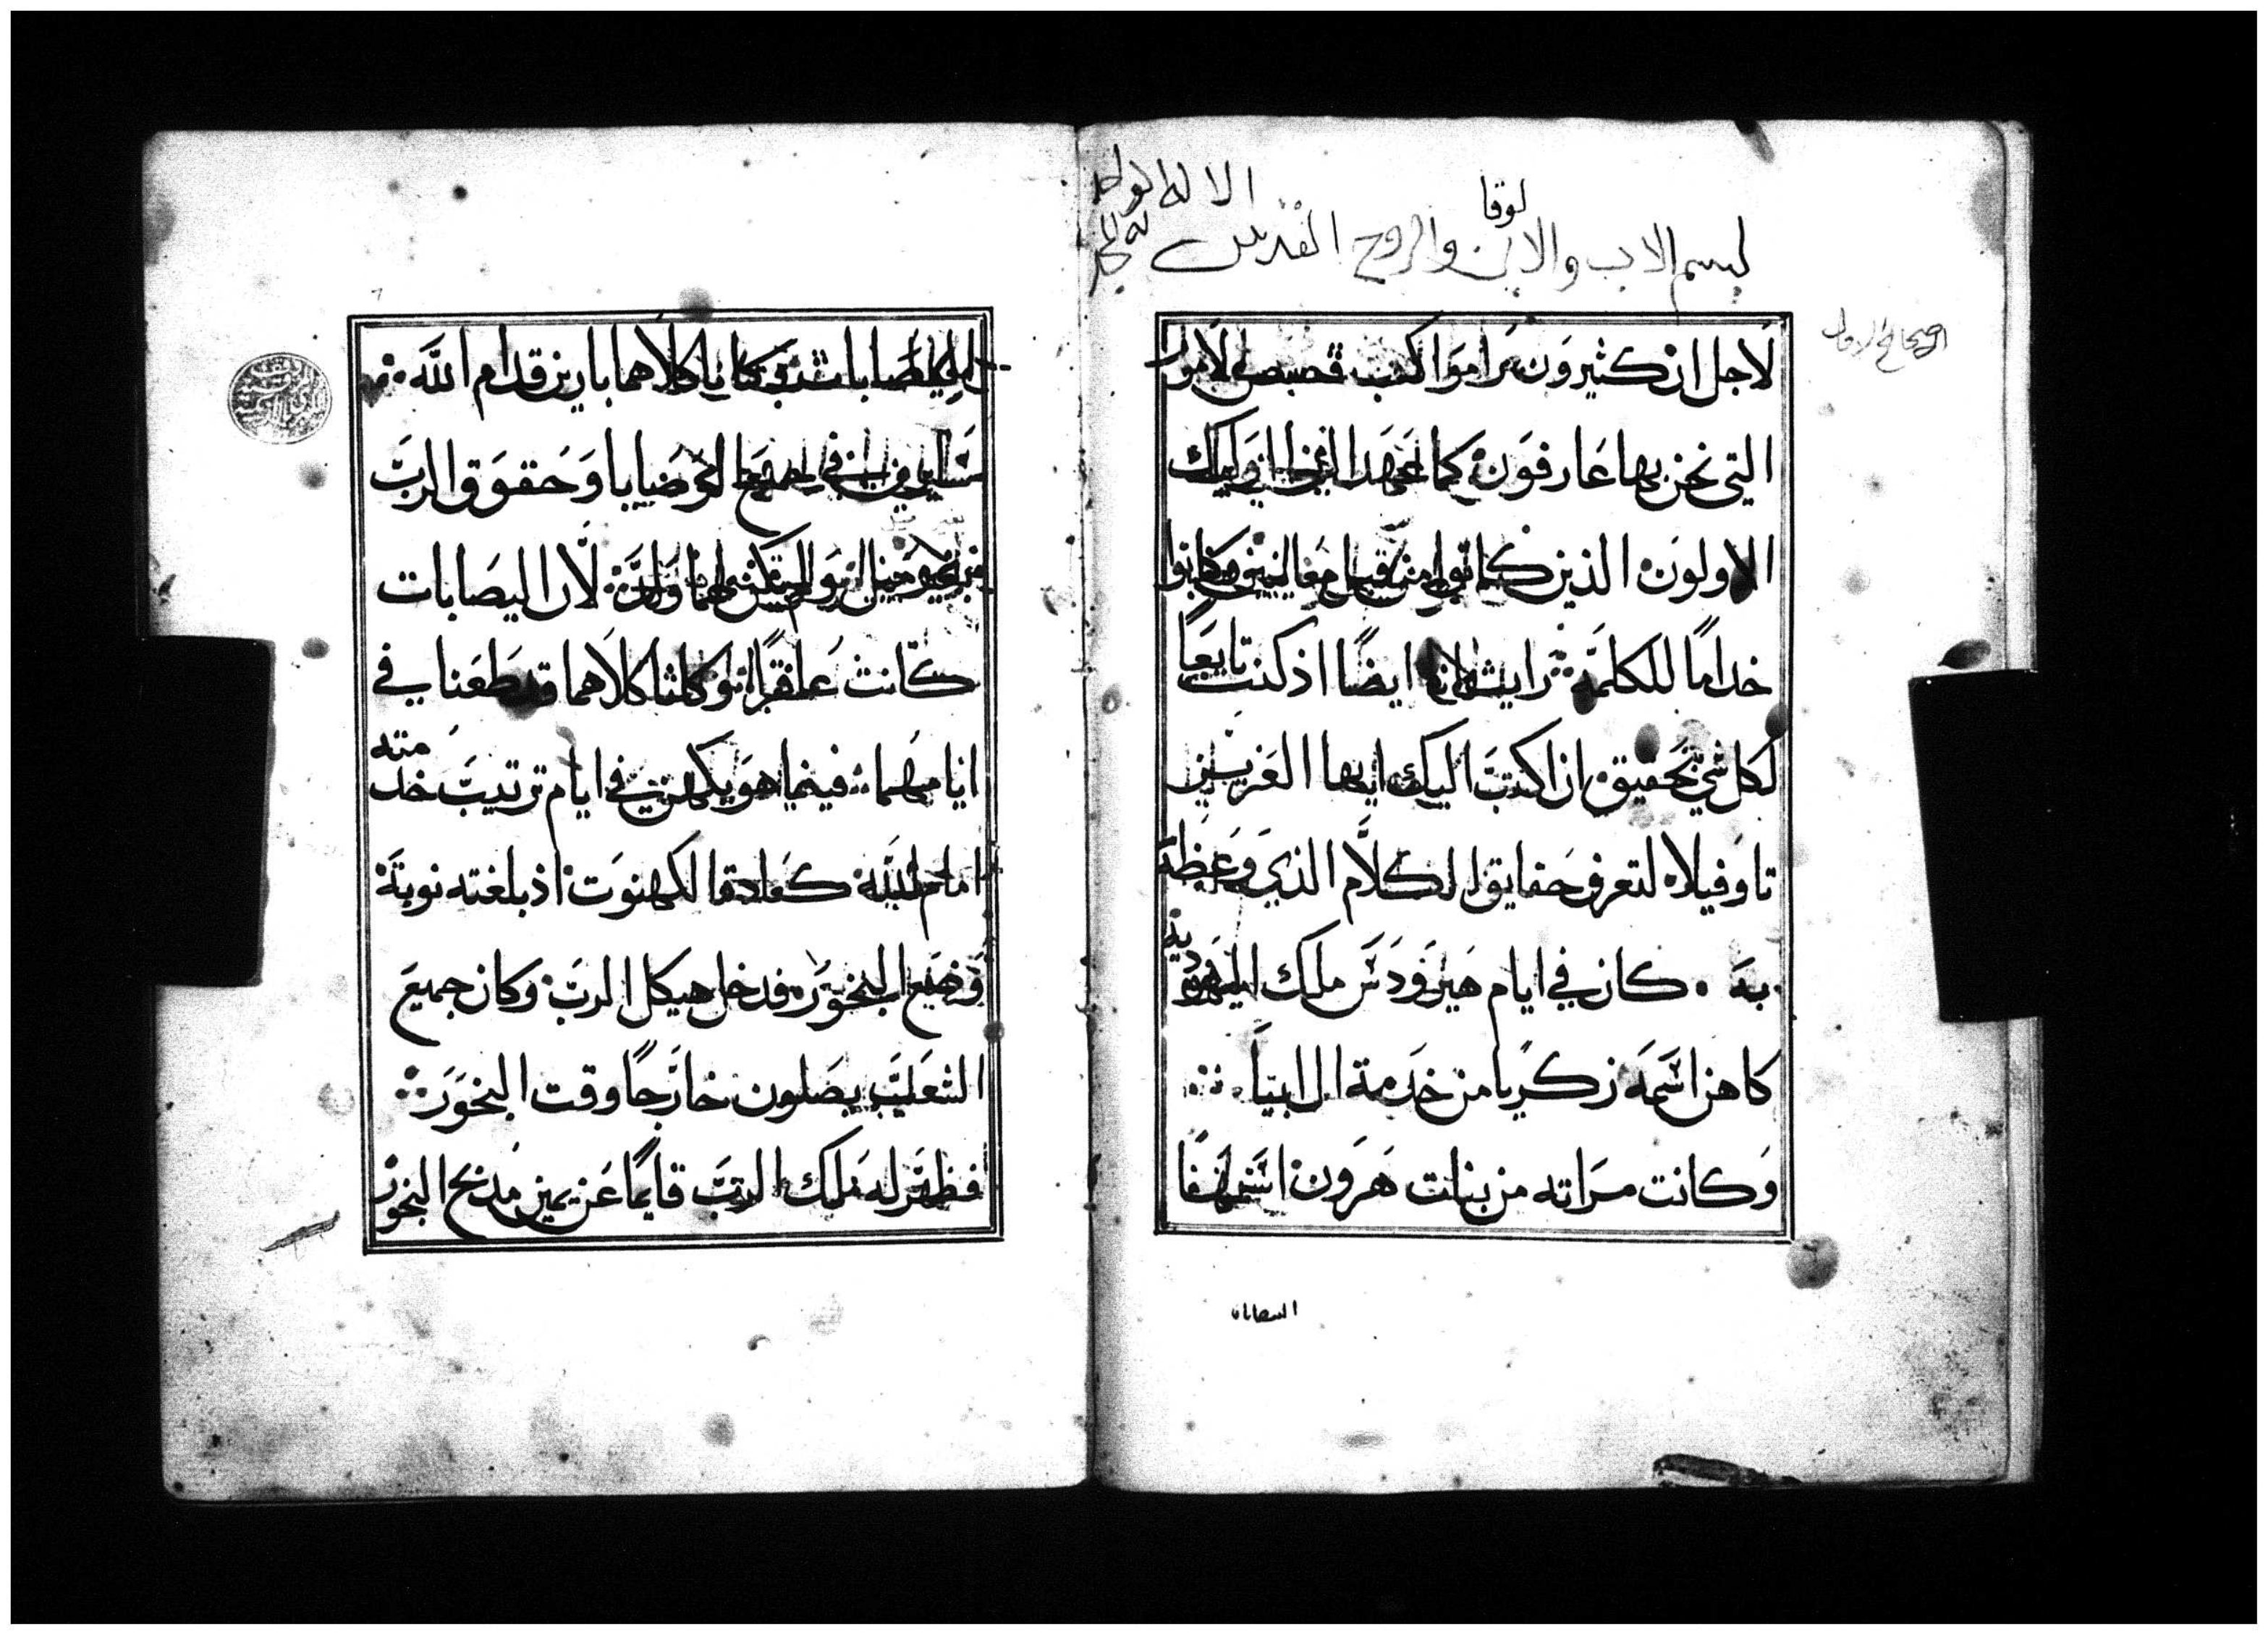 الاله الواحد
لوقا
بسم الاب والابن والروح القدس له المجد
الاصحاح الاول
لاجل ان كثيرون راموا كتب قصص الامور
التي نحن بها عارفون كما عهد الينا اوليك
الاولون الذين كانوا من قبل معاينين وكانوا
خداما للكلمة رايت انا ايضا اذ كنت تابعا
لكل شي بتحقيق ان اكتب اليك ايها العزيز
تاوفيلا لتعرف حقايق الكلام الذي وعظت
به كان في ايام هيرودس ملك اليهودية
كاهن اسمه زكريا من خدمة ال ابيا
وكانت مراته من بنات هرون اسمها
اليصابات
اليصابات وكانا كلاهما بارين قدام الله
سايرين في جميع الوصايا وحقوق الرب
بغير عيب ولم يكن لهما ولد لان اليصابات
كانت عاقرا وكانا كلاهما قد طعنا في
ايامهما فبينما هو يكهن في ايام ترتيب خدمته
امام الله كعادة الكهنوت اذ بلغته نوبة
وضع البخور فدخل هيكل الرب وكان جميع
الشعب يصلون خارجا وقت البخور
فظهر له ملك الرب قايما عن يمين مذبح البخور